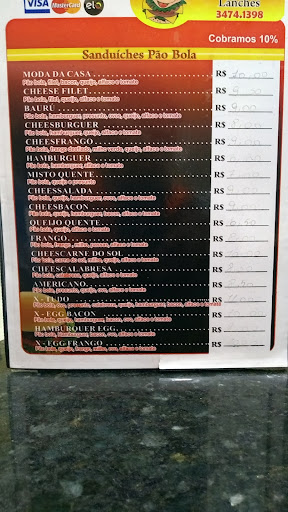 VISA MasterCard elo
Lanches
3474.1398
Cobramos 10%
Sanduíches Pão Bola
MODA DA CASA R$ 10,00
Pão bola, filet, bacon, queijo, alface e tomate
CHEESE FILET R$
Pão bola, filet, queijo, alface e tomate
BAURÚ R$ 9,00
Pão bola, hamburguer, presunto, ovo, queijo, alface e tomate
CHEESBURGUER R$
Pão bola, hamburguer, queijo, alface e tomate
CHEESFRANGO R$ 9,00
Pão bola, frango desfiado, milho verde, alface e tomate
HAMBURGUER R$
Pão bola, hamburguer, alface e tomate
MISTO QUENTE R$
Pão bola, queijo e presunto
CHEESSALADA R$
Pão bola, queijo, hamburguer, alface e tomate
CHEESBACON R$
Pão bola, queijo, hamburguer, bacon, alface e tomate
QUEIJO QUENTE R$
Pão bola, queijo, alface e tomate
FRANGO R$
Pão bola, frango, milho, alface e tomate
CHEESCARNE DO SOL R$
Pão bola, carne do sol, milho, queijo, alface e tomate
CHEESCALABRESA R$
Pão bola, calabresa, queijo, alface e tomate
AMERICANO R$
Pão bola, presunto, queijo, ovo, alface e tomate
X - TUDO R$
X - EGG BACON R$
Pão bola, queijo, hamburguer, bacon, ovo, alface e tomate
HAMBURQUER EGG R$
Pão bola, hamburguer, bacon, ovo, alface e tomate
X - EGG FRANGO R$
Pão bola, queijo, frango, milho, ovo, alface e tomate